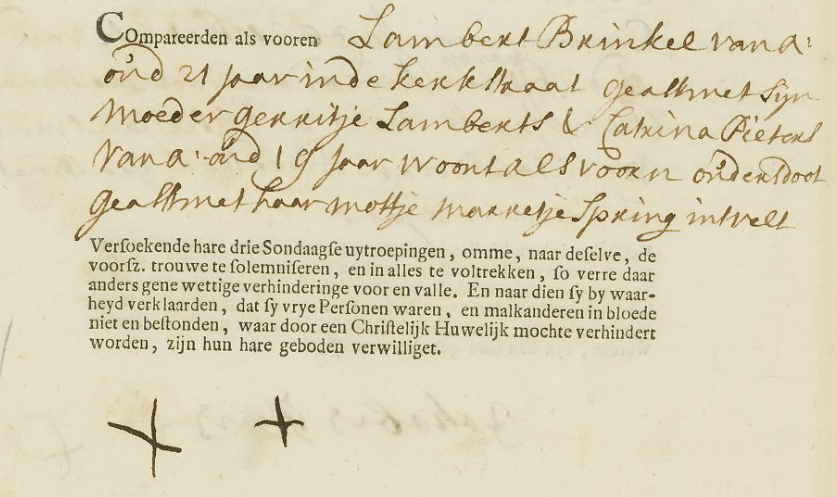 Compareerden als vooren Lambert Brinkel van a:
oud 21 jaar in de kerkstraat geast met syn
moeder gerritje Lamberts & Catrina Pieters
van a: oud 19 jaar woont als voorn ouders doot
geast met haar mottje marretje Spring int velt
Versoekende hare drie Sondaagse uytroepingen, omme, naar deselve, de
voorsz. trouwe te solemniseren, en in alles te voltrekken, so verre daar
anders gene wettige verhinderinge voor en valle. En naar dien sy by waar-
heyd verklaarden, dat sy vrye Personen waren, en malkanderen in bloede
niet en bestonden, waar door een Christelijk Huwelijk mochte verhindert
worden, zijn hun hare geboden verwilliget.